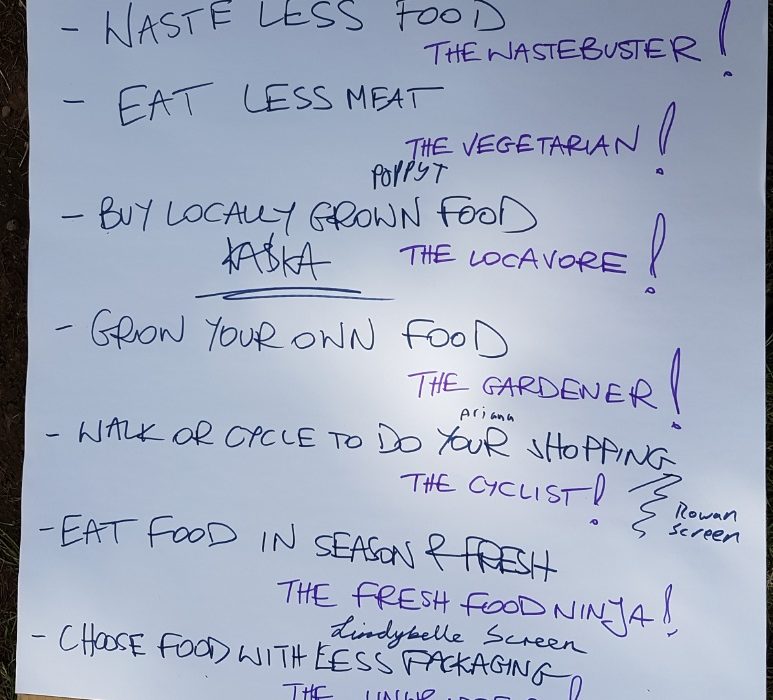 - WASTE LESS FOOD
THE WASTEBUSTER!
- EAT LESS MEAT
THE VEGETARIAN!
POPPY T
- BUY LOCALLY GROWN FOOD
KASKA THE LOCAVORE!
- GROW YOUR OWN FOOD
THE GARDENER!
Ariana
- WALK OR CYCLE TO DO YOUR SHOPPING
THE CYCLIST!
Rowan
Screen
- EAT FOOD IN SEASON & FRESH
THE FRESH FOOD NINJA!
Lindybelle Screen
- CHOOSE FOOD WITH LESS PACKAGING
THE